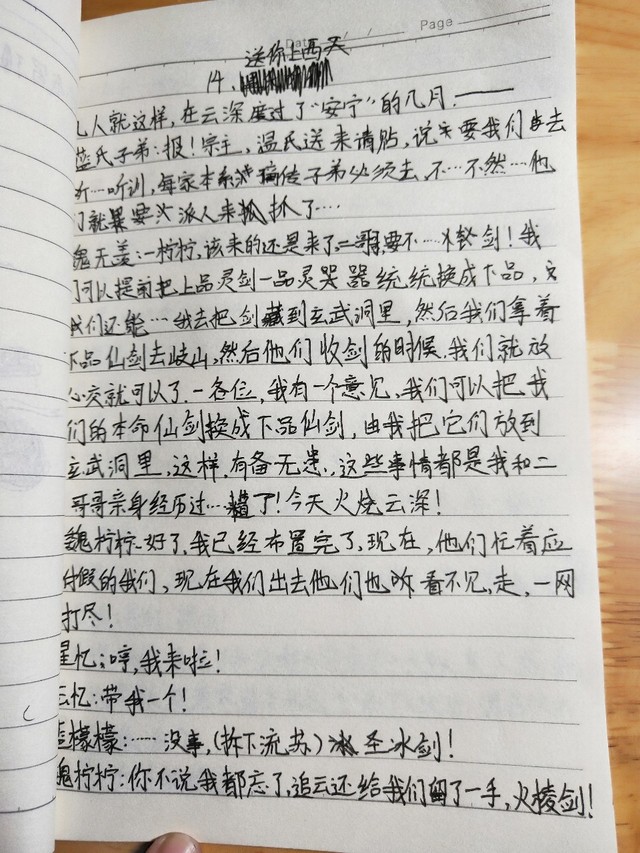 Date / / Page
送你上西天
14.
几人就这样，在云深度过了“安宁”的几月.——
蓝氏子弟：报！宗主，温氏送来请贴，说要我们去
听…听训，每家本系嫡传子弟必须去，不…不然…他
们就要派人来抓了…
魏无羡：—柠柠，该来的还是来了，二哥，要不…火怂剑！我
们可以提前把上品灵剑一品灵器统统换成下品，
我们还能…我去把剑藏到玄武洞里，然后我们拿着
下品仙剑去岐山，然后他们收剑的时候，我们就放
心交就可以了.一各位，我有一个意见，我们可以把我
们的本命仙剑换成下品仙剑，由我把它们放到
玄武洞里，这样，有备无患，这些事情都是我和二
哥哥亲身经历过…糟了！今天火烧云深！
魏柠柠：好了，我已经布置完了，现在，他们忙着应
付假的我们，现在我们出去他们也看不见，走，一网
打尽！
星忆：哼，我来啦！
云忆：带我一个！
蓝檬檬：……没事，（拆下流苏）圣冰剑！
魏柠柠：你不说我都忘了，追云还给我们留了一手，火棱剑！